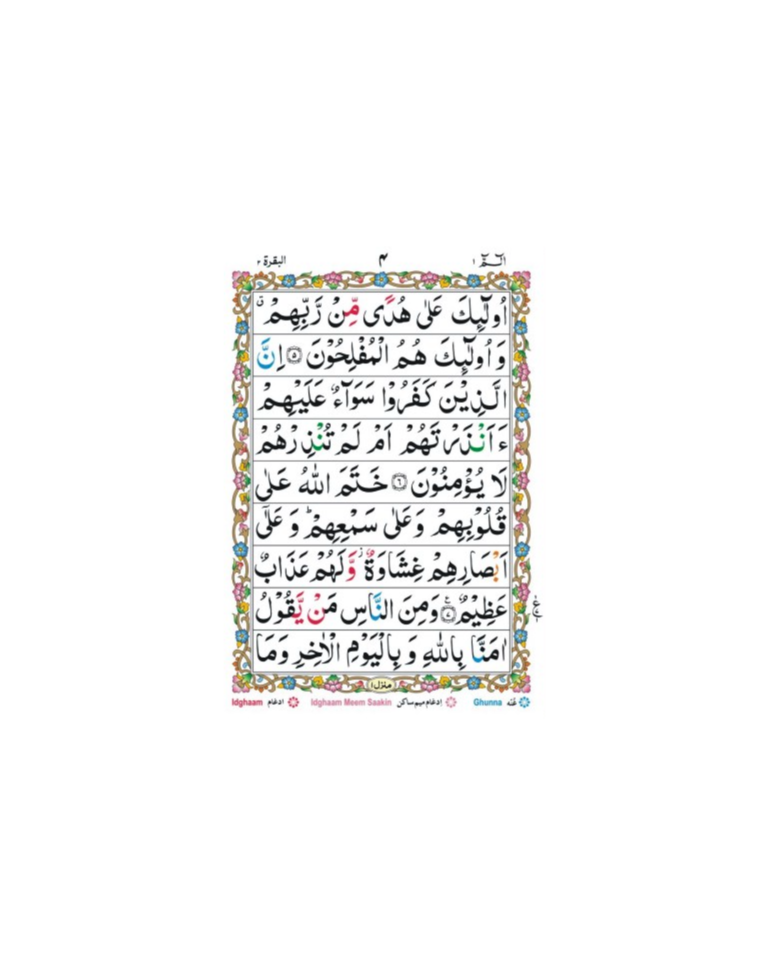 الٓمّٓ ۱ ۴ البقرة ۲
اُولٰٓئِكَ عَلٰى هُدًى مِّنْ رَّبِّهِمْ ۙ
وَ اُولٰٓئِكَ هُمُ الْمُفْلِحُوْنَ ۝۵ اِنَّ
الَّذِيْنَ كَفَرُوْا سَوَآءٌ عَلَيْهِمْ
ءَاَنْذَرْتَهُمْ اَمْ لَمْ تُنْذِرْهُمْ
لَا يُؤْمِنُوْنَ ۝۶ خَتَمَ اللّٰهُ عَلٰى
قُلُوْبِهِمْ وَعَلٰى سَمْعِهِمْ ؕ وَ عَلٰٓى
اَبْصَارِهِمْ غِشَاوَةٌ ؗ وَّلَهُمْ عَذَابٌ
عَظِيْمٌ ۝۷ وَمِنَ النَّاسِ مَنْ يَّقُوْلُ
اٰمَنَّا بِاللّٰهِ وَ بِالْيَوْمِ الْاٰخِرِ وَمَا
منزل ۱
Idghaam ادغام Idghaam Meem Saakin ادغام میم ساکن Ghunna غنّہ